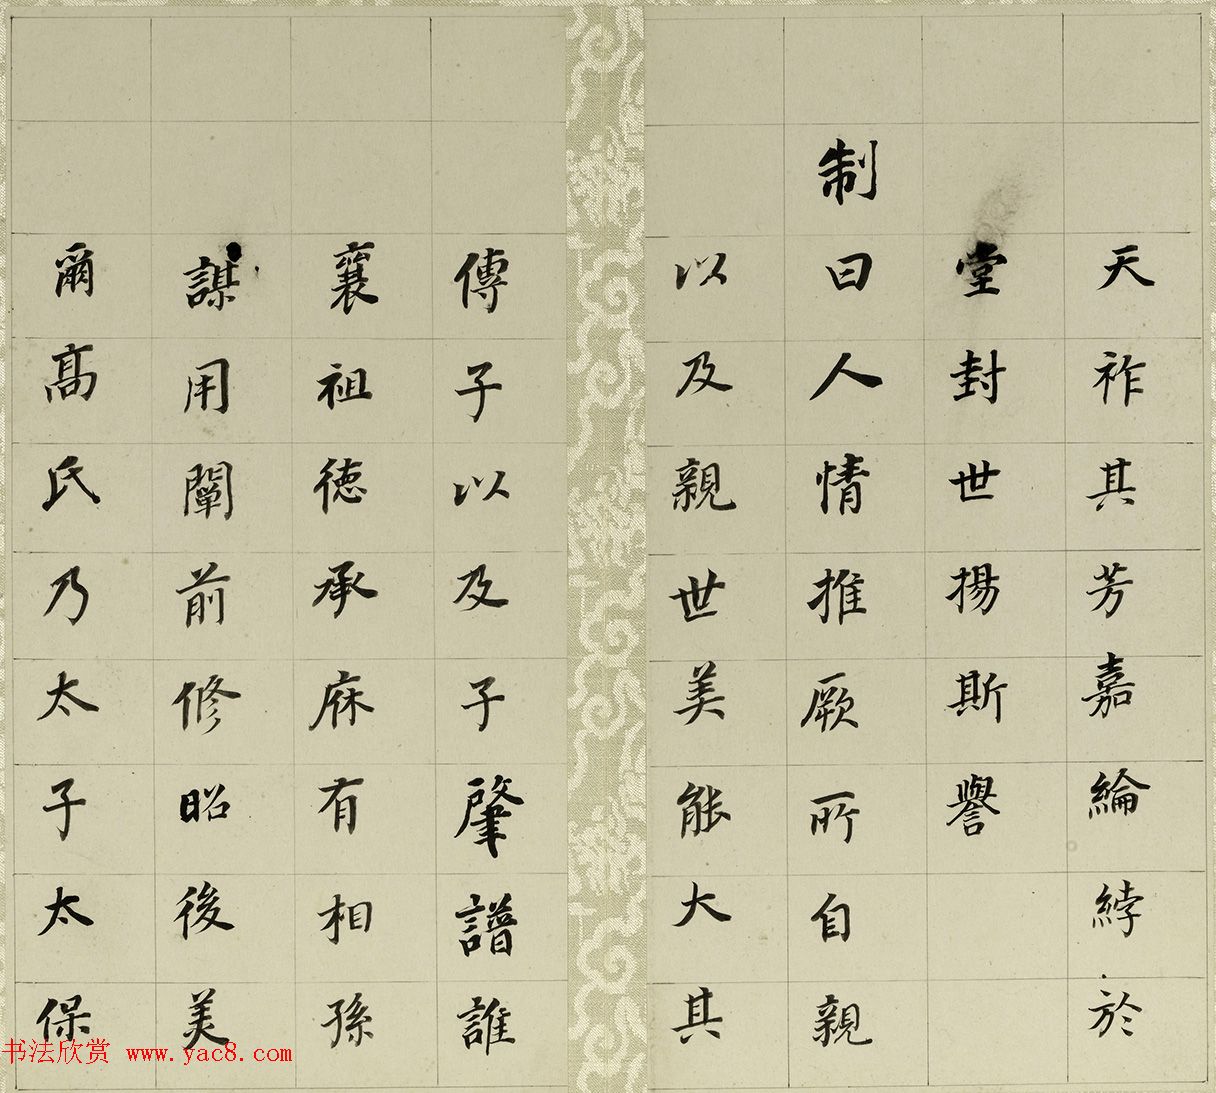 天祚其芳嘉綸綍於
堂封世揚斯譽
制曰人情推厥所自親
以及親世美能大其
傳子以及子肇譜誰
襄祖德承庥有相孫
謀用闡前修昭後美
爾高氏乃太子太保
书法欣赏 www.yac8.com